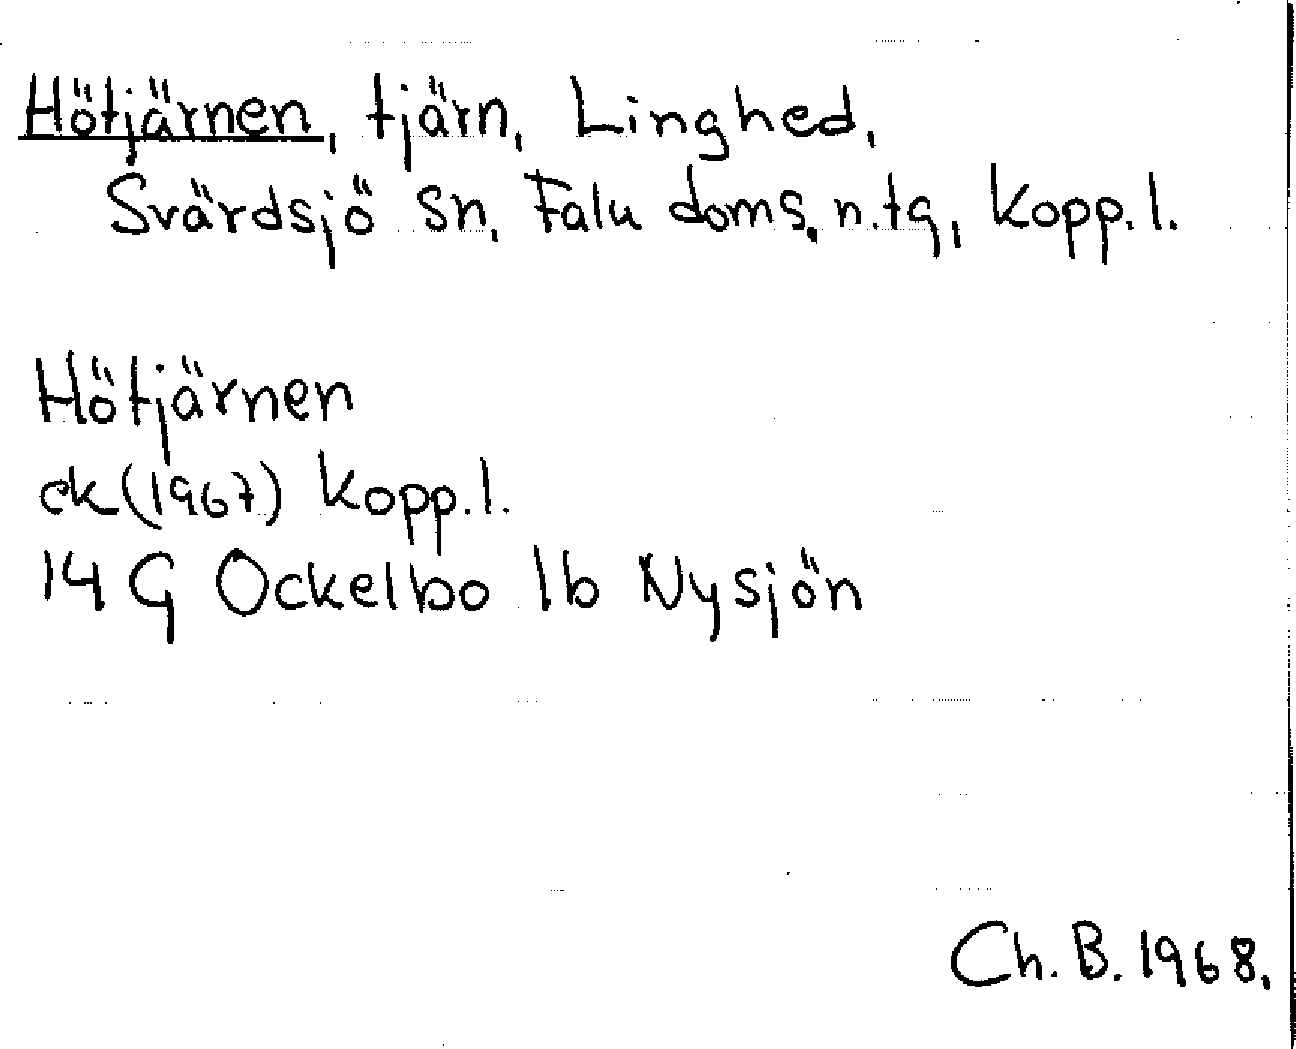 Hötjärnen, tjärn, Linghed,
Svärdsjö sn, Falu doms. n.tg, Kopp.l.
Hötjärnen
ek (1967) Kopp.l.
14 G Ockelbo 1b Nysjön
Ch. B. 1968.